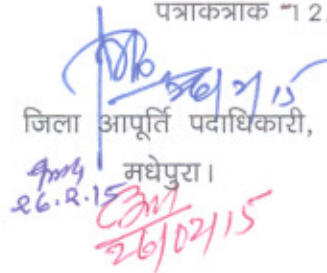 पत्राकत्राक -12
26/2/15
जिला आपूर्ति पदाधिकारी,
मधेपुरा।
26.2.15
26/02/15